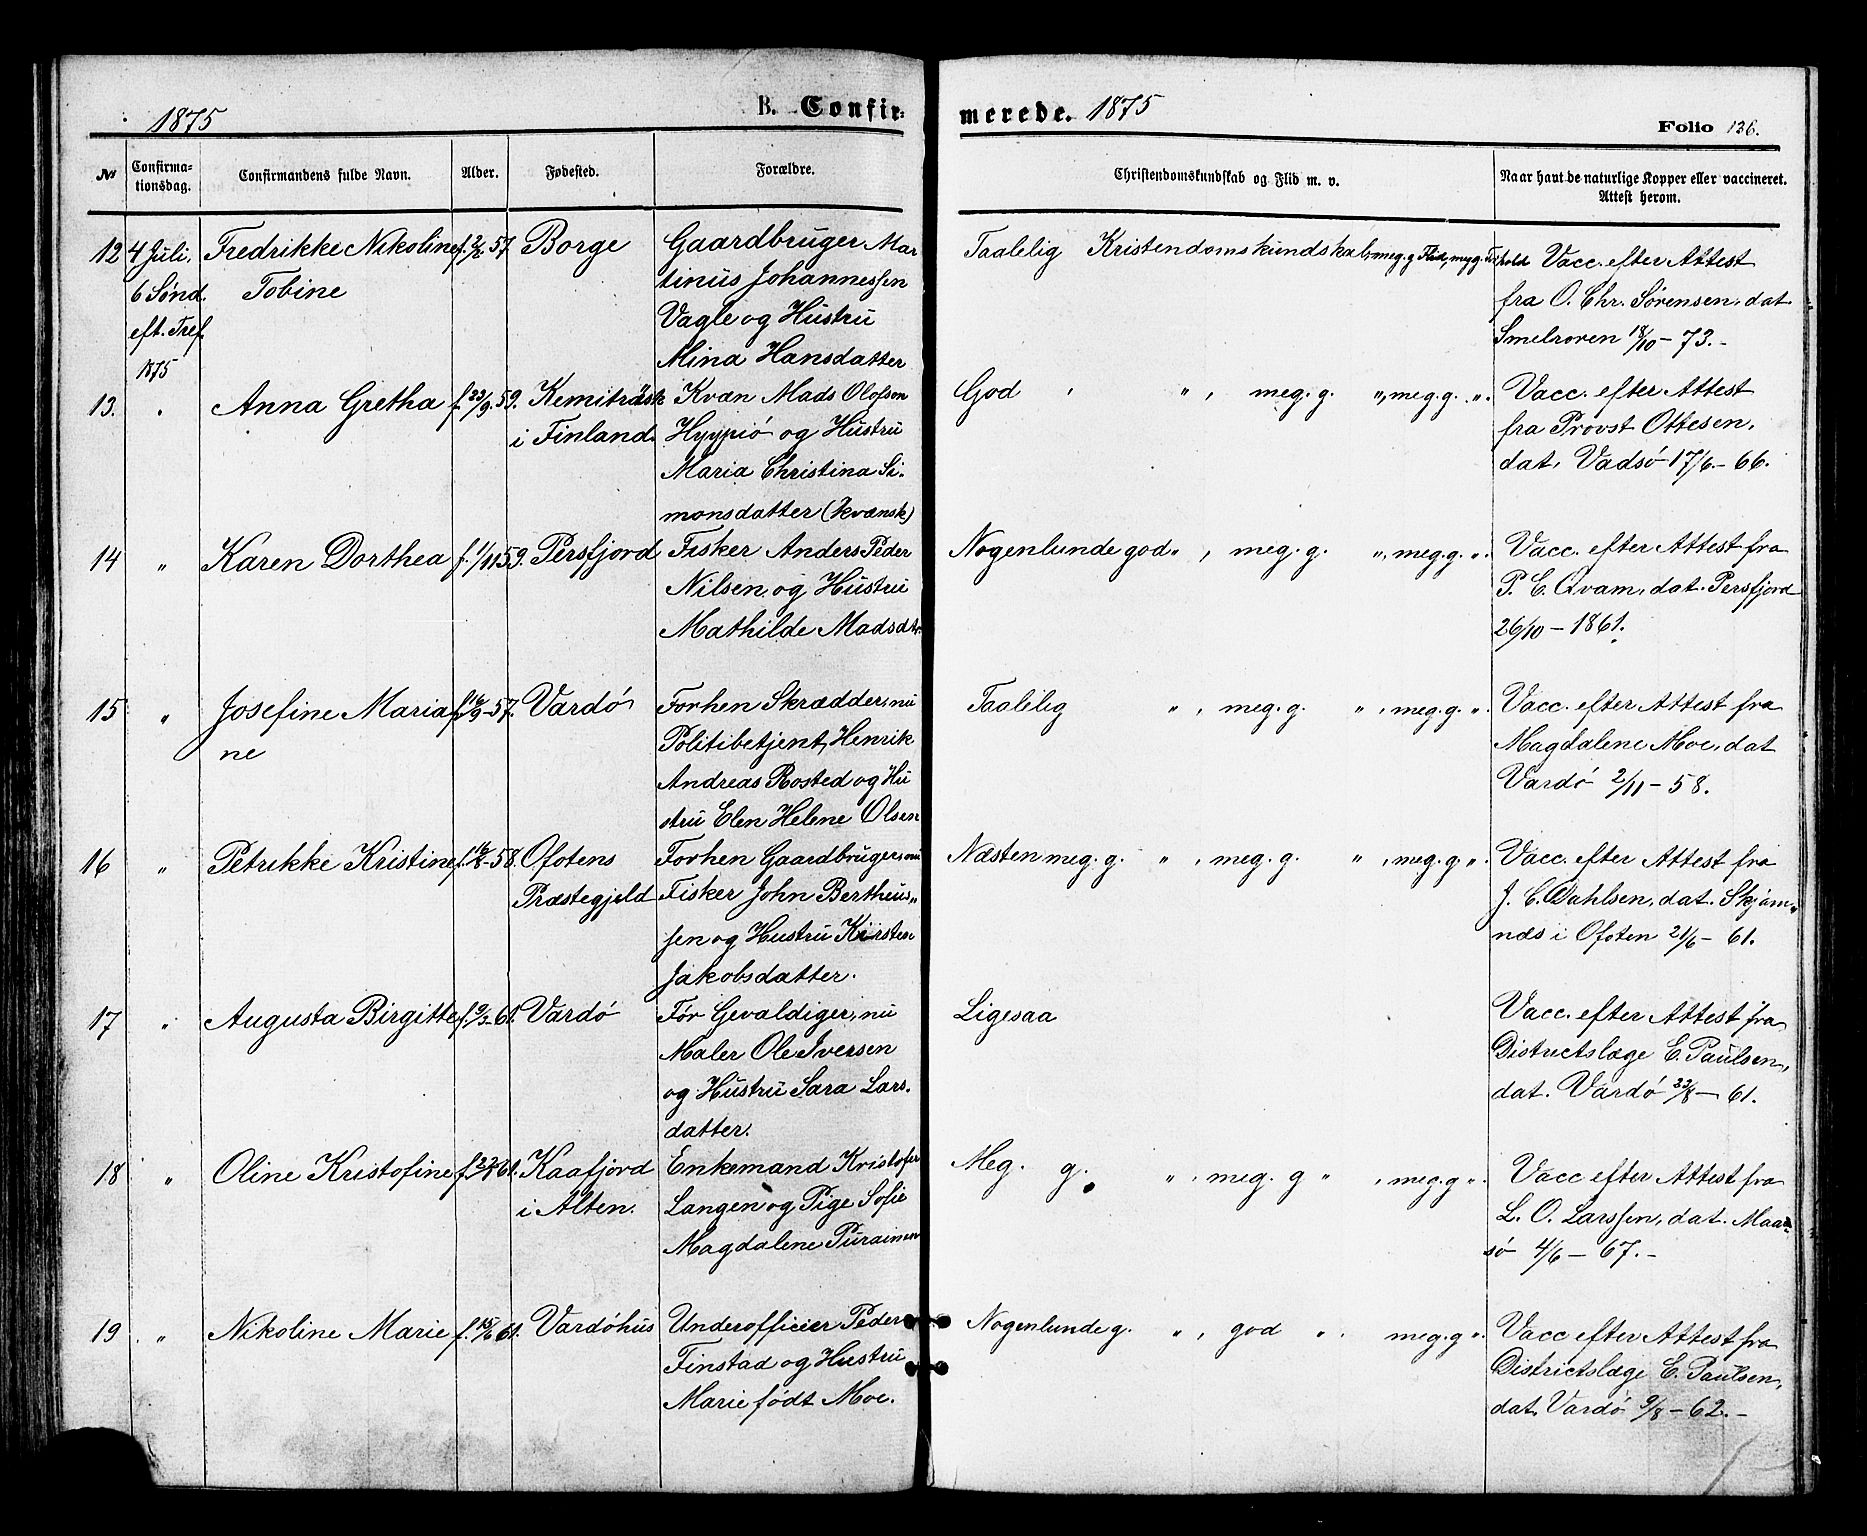 1875
B. Confir-
merede. 1875
Folio 136.
№
Confirma-
tionsdag.
Confirmandens fulde Navn.
Alder.
Fødested.
Forældre.
Christendomskundskab og Flid m. v.
Naar havt de naturlige Kopper eller vaccineret.
Attest herom.
12 4 Juli, Fredrikke Nikoline 57. Borge Gaardbruger Mar
6 Sønd. Tobine tinus Johannessen
eft. Tref. Vagle og Hustru
1875 Mina Hansdatter
Taalelig Kristendomskundskab, meg. g Flid, meg. g. Forhold
Vacc. efter Attest
fra O. Chr. Sørensen, dat
Smelroren 18/10 - 73. -
13. " Anna Gretha f. 23/9. 59. Kemiträsk Kvæn Mads Olofson
i Finland. Hyypiö og Hustru
Maria Christina Si-
monsdatter (kvænsk)
God " , meg. g. ", meg. g. ".
Vacc. efter Attest
fra Provst Ottesen,
dat. Vadsø 17/6 - 66.
14 " Karen Dorthea f. 1/11 59. Persfjord Fisker Anders Peder
Nilsen og Hustru
Mathilde Madsdtr.
Nogenlunde god " , meg. g. ", meg. g. ".
Vacc. efter Attest fra
P. E. Qvam, dat. Persfjord
26/10 - 1861.
15 " Josefine Maria f. 16/9 - 57. Vardö Forhen Skrædder, nu
ne Politibetjent, Henrik
Andreas Rosted og Hu
stru Elen Helene Olsen
Taalelig " , meg. g. " , meg. g. ".
Vacc. efter Attest fra
Magdalene Moe, dat
Vardö 2/11 - 58.
16 " Petrikke Kristine 58. Ofotens Forhen Gaardbruger, nu
Præstegjeld Fisker John Bertheus"
sen og Hustru Kirsten
Jakobsdatter.
Næsten meg. g. " , meg. g. " , meg. g ".
Vacc. efter Attest fra
J. C. Dahlsen, dat. Skjom"
næs i Ofoten 21/6 - 61.
17 " Augusta Birgitte f. 9/3 - 61. Vardö Før Gevaldiger, nu
Maler Ole Iversen
og Hustru Sara Lars.
datter.
Ligesaa
Vacc. efter Attest fra
Districtslæge E. Paulsen,
dat. Vardö 23/8 - 61.
18 " Oline Kristofine 61. Kaafjord Enkemand Kristofer
i Alten. Langen og Pige Sofie
Magdalene Purainen
Meg. g. " , meg. g " , meg. g ".
Vacc efter Attest fra
L. O. Larssen, dat. Maa
sö 4/6 - 67. -
19 " Nikoline Marie f. 15/6 61. Vardöhus Underofficier Peder
Finstad og Hustru
Marie født Moe.
Nogenlunde g. " , god " . meg. g ".
Vacc efter Attest fra
Districtslæge E. Paulsen,
dat. Vardö 9/8 - 62. -